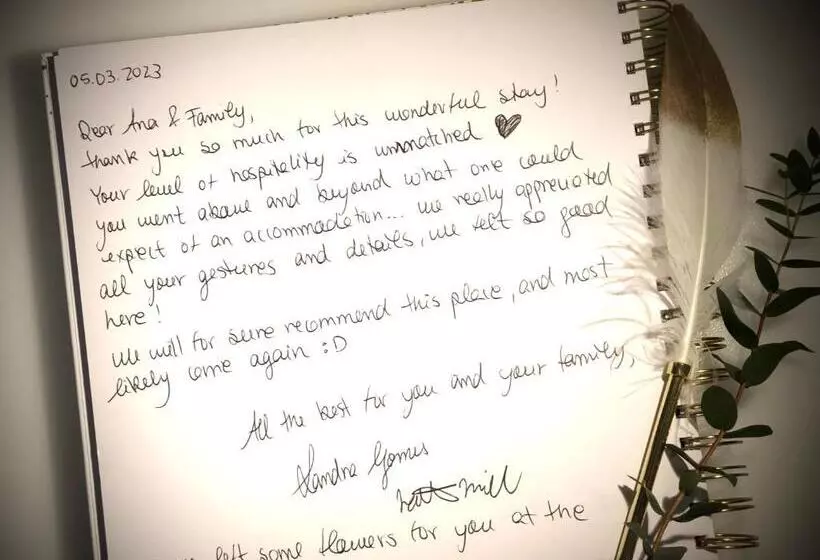 05.03.2023
Dear Ana & Family,
thank you so much for this wonderful stay!
Your level of hospitality is unmatched ♥
you went above and beyond what one could
expect of an accommodation... we really appreciated
all your gestures and details, we felt so good
here!
We will for sure recommend this place, and most
likely come again :D
All the best for you and your family,
Gomes
left some flowers for you at the